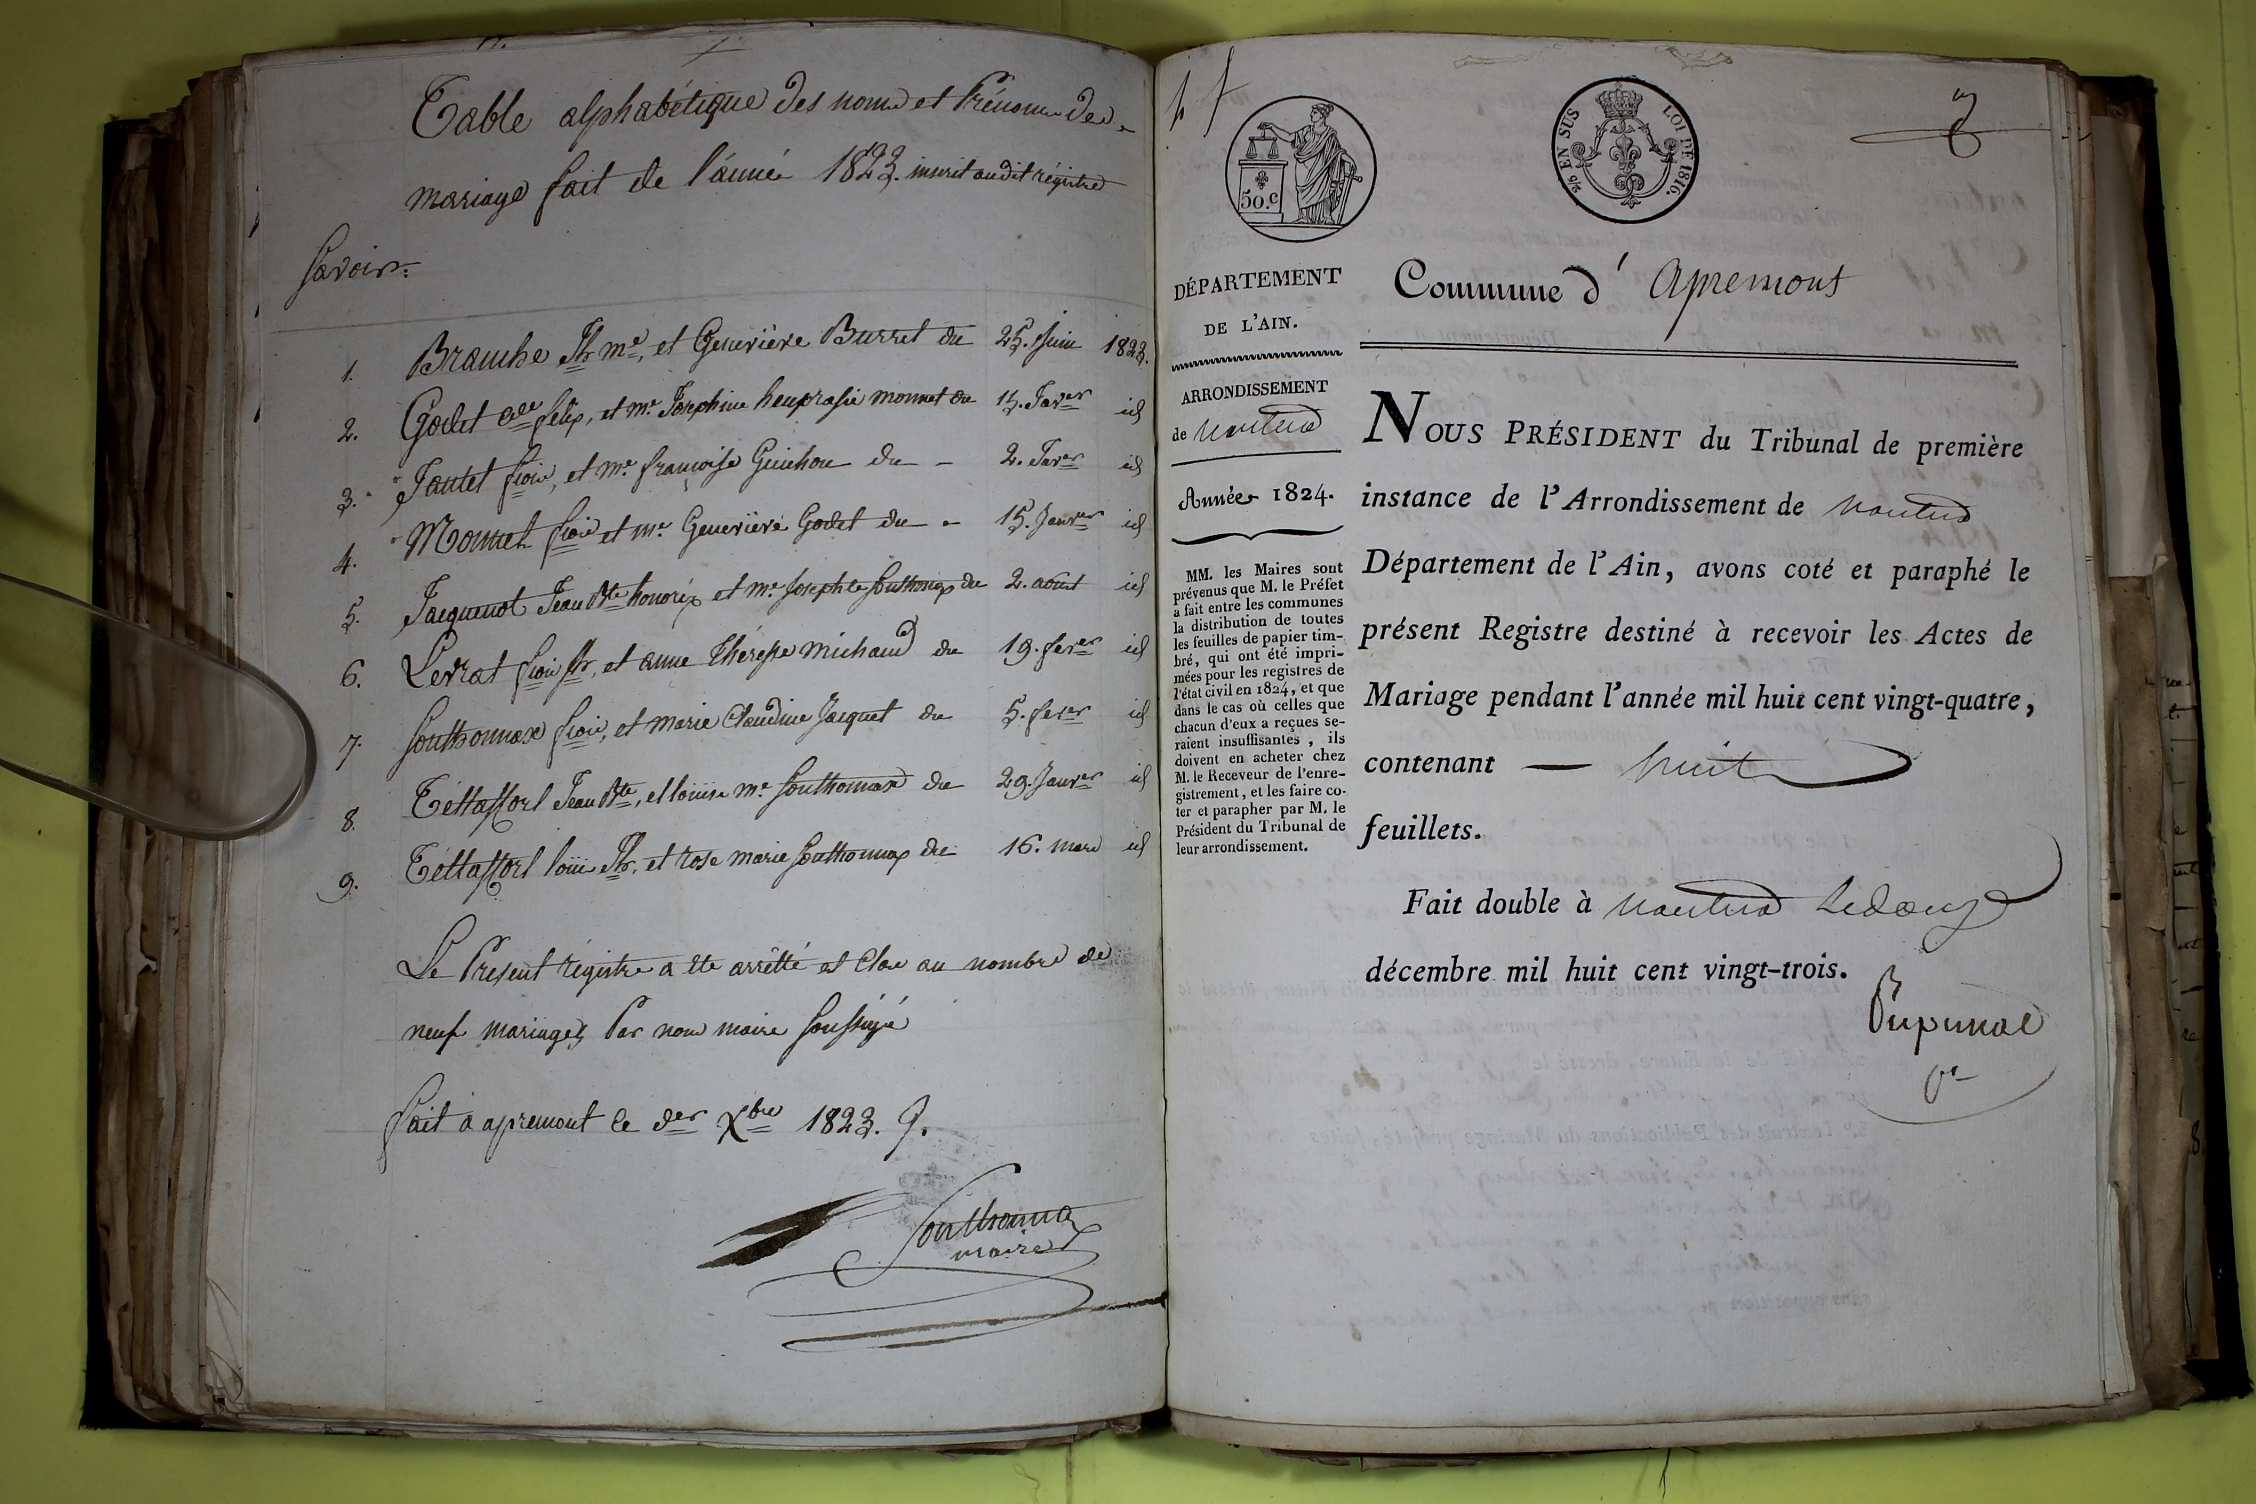 Table alphabétique des noms et Prénoms des
mariage fait de l'année 1823. inscrit audit régistre
Savoir:
1. Branche Jh me, et Geneviève Burret du 25. Juin 1823.
2. Godet felix, et me. Josephine heuprasie monnet du 15. Javer id
3. Jantet fcois, et me. françoise Guichon du - 2. Javer id
4. Monnet fcois et me. Geneviève Godet du - 15. Janver id
5. Jacquenot Jean Bte honoréx et me. Josephte Southonax du 2. aout id
6. Levrat fcois Jh, et anne Thérèse michaud du 19. fever id
7. Southonnax fcois, et marie Claudine Jacquet du 5. fever id
8. Jean Bte, et louise me. Southonax du 29. Janver id
9. louis Jh, et rose marie Southonnax du 16. mars id
Le Présent régistre a été arrêtté et clos au nombre de
neuf mariages Par nous maire soussigné
fait a apremont le der Xbre 1823.
Southonnax
maire
50.c
5/c EN SUS LOI DE 1816.
DÉPARTEMENT
DE L'AIN.
ARRONDISSEMENT
de nantua
Année 1824.
MM. les Maires sont
prévenus que M. le Préfet
a fait entre les communes
la distribution de toutes
les feuilles de papier tim-
bré, qui ont été impri-
mées pour les registres de
l'état civil en 1824, et que
dans le cas où celles que
chacun d'eux a reçues se-
raient insuffisantes, ils
doivent en acheter chez
M. le Receveur de l'enre-
gistrement, et les faire co-
ter et parapher par M. le
Président du Tribunal de
leur arrondissement.
Commune d' Apremont
NOUS PRÉSIDENT du Tribunal de première
instance de l'Arrondissement de nantua
Département de l'Ain, avons coté et paraphé le
présent Registre destiné à recevoir les Actes de
Mariage pendant l'année mil huit cent vingt-quatre,
contenant — huit
feuillets.
Fait double à nantua le douze
décembre mil huit cent vingt-trois.